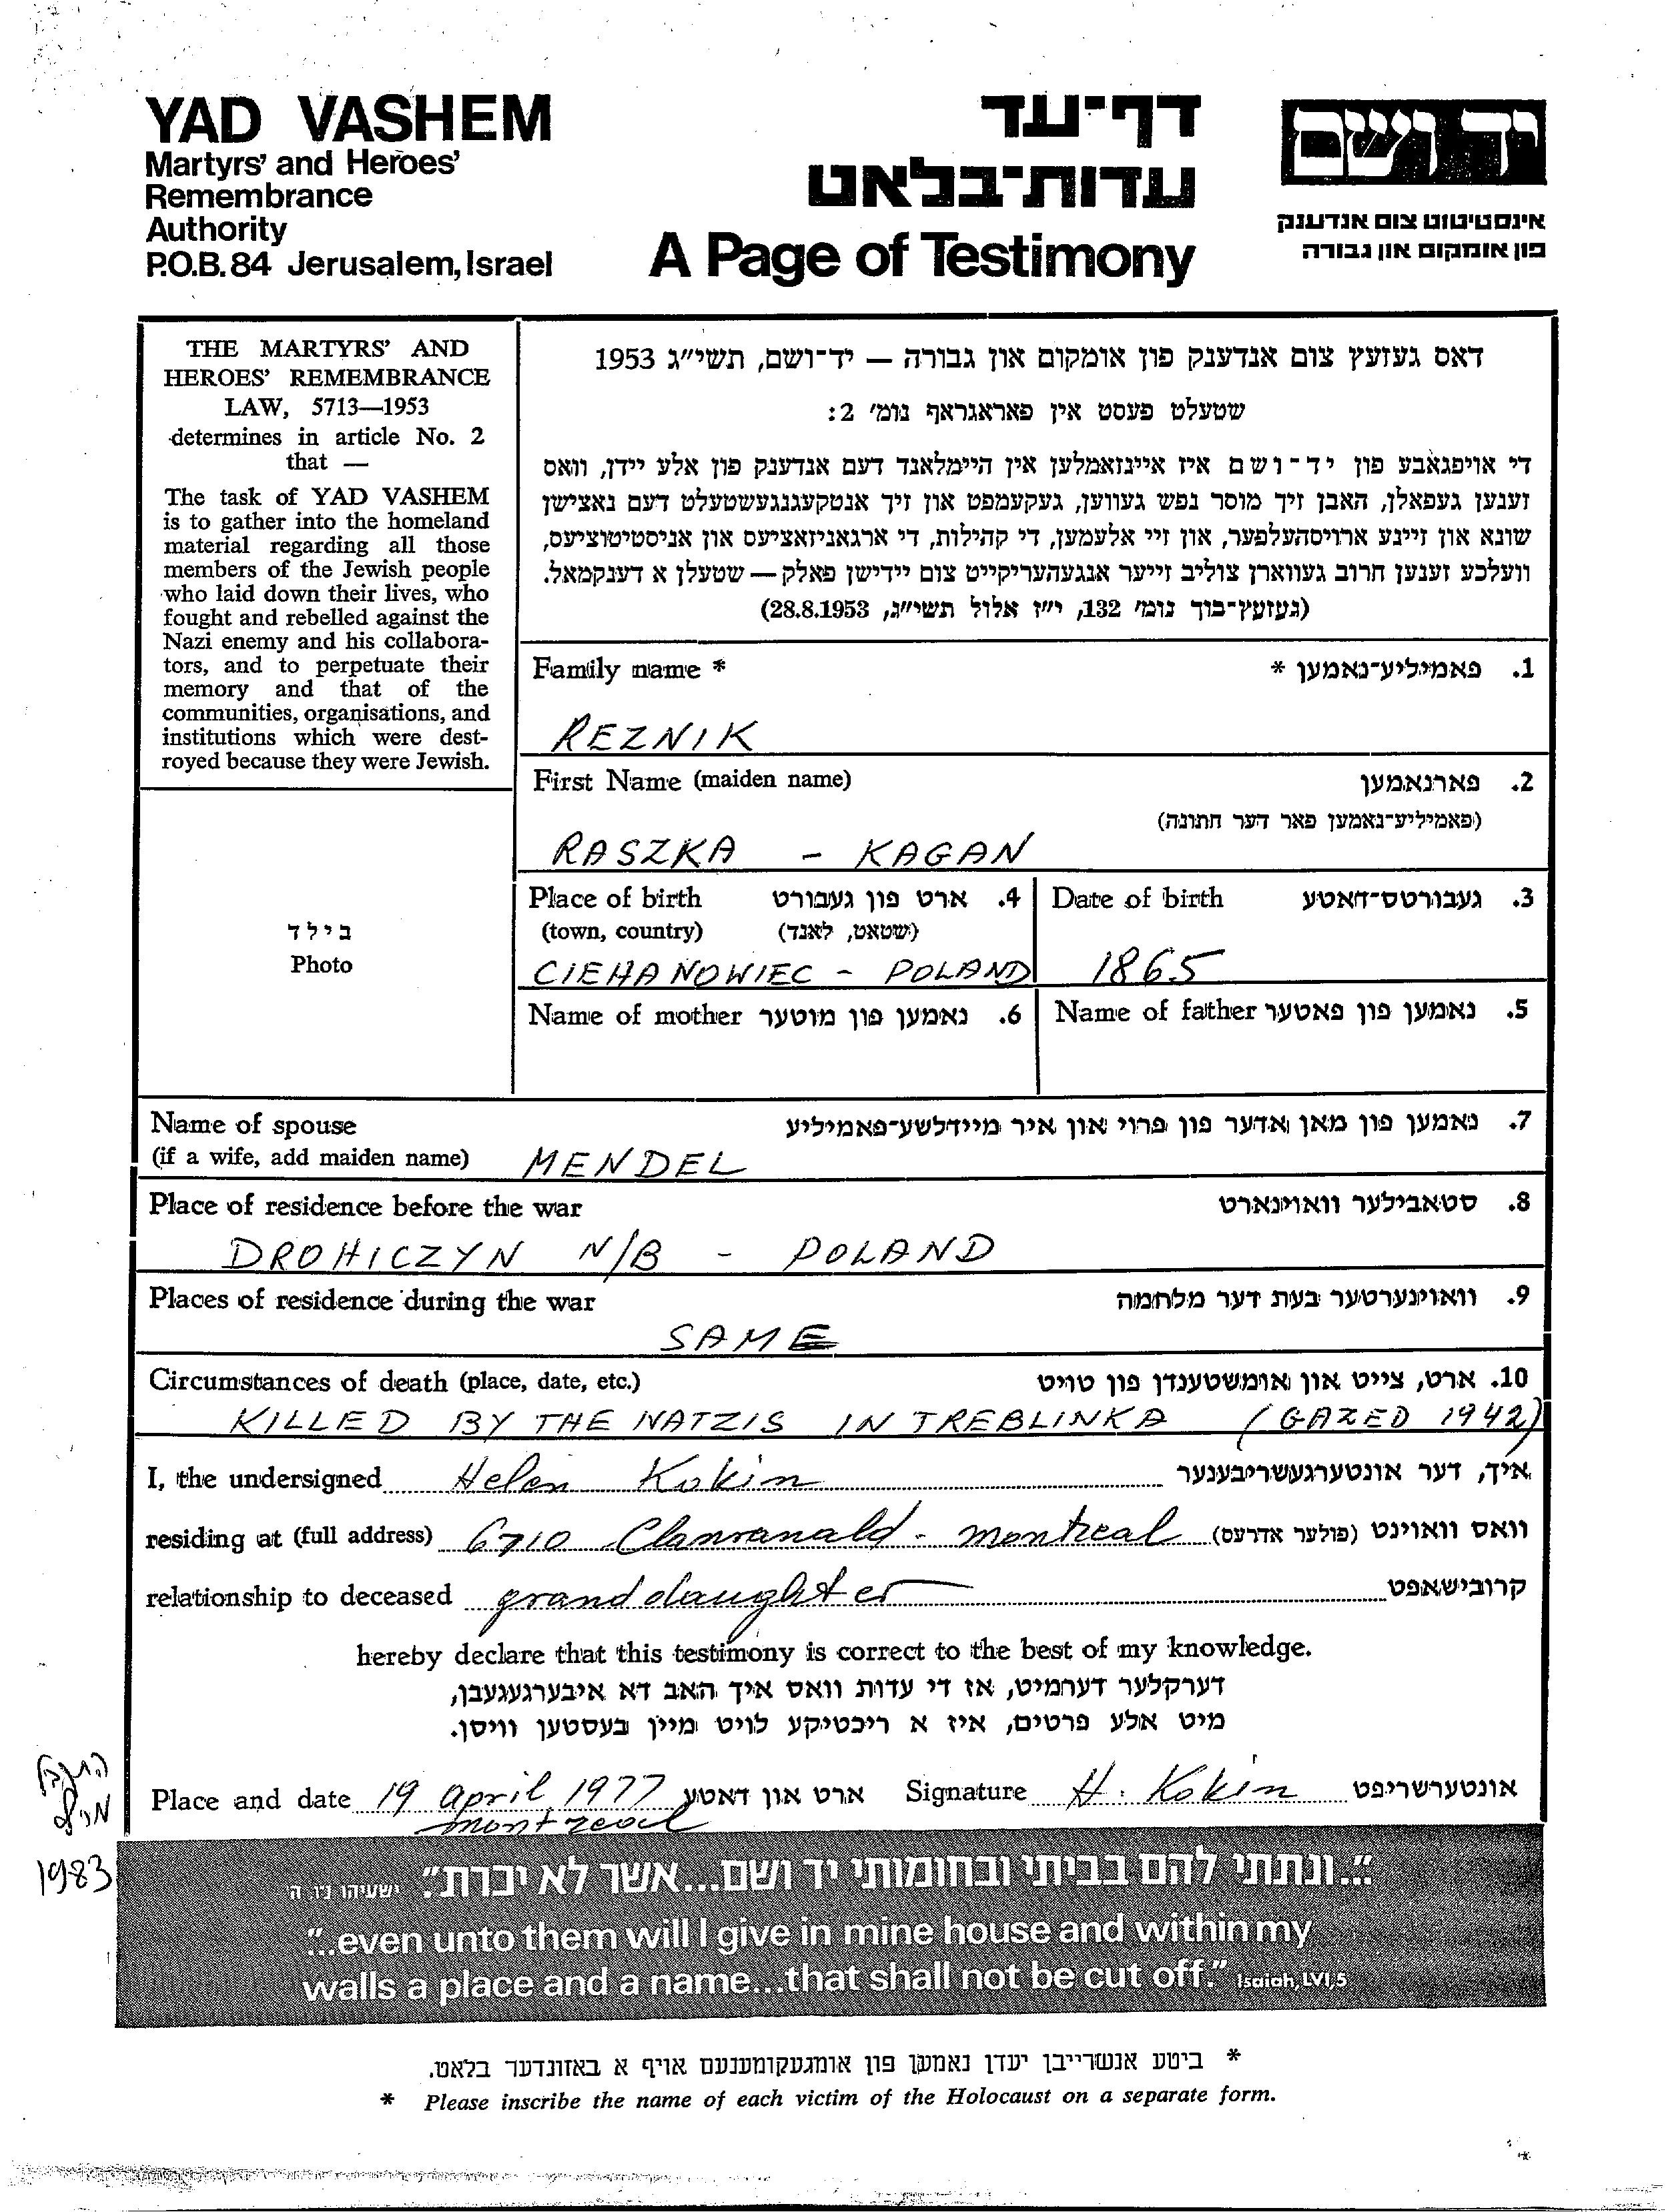 YAD VASHEM
Martyrs' and Heroes'
Remembrance
Authority
P.O.B. 84 Jerusalem, Israel
דף-עד
עדות-בלאט
A Page of Testimony
יד ושם
אינסטיטוט צום אנדענק
פון אומקום און גבורה
THE MARTYRS' AND
HEROES' REMEMBRANCE
LAW, 5713—1953
determines in article No. 2
that —
The task of YAD VASHEM
is to gather into the homeland
material regarding all those
members of the Jewish people
who laid down their lives, who
fought and rebelled against the
Nazi enemy and his collabora-
tors, and to perpetuate their
memory and that of the
communities, organisations, and
institutions which were dest-
royed because they were Jewish.
בילד
Photo
דאס געזעץ צום אנדענק פון אומקום און גבורה — יד-ושם, תשי"ג 1953
שטעלט פעסט אין פאראגראף נומ' 2:
די אויפגאבע פון יד-ושם איז איינזאמלען אין היימלאנד דעם אנדענק פון אלע יידן, וואס
זענען געפאלן, האבן זיך מוסר נפש געווען, געקעמפט און זיך אנטקעגנגעשטעלט דעם נאצישן
שונא און זיינע ארויסהעלפער, און זיי אלעמען, די קהילות, די ארגאניזאציעס און אניסטיטוציעס,
וועלכע זענען חרוב געווארן צוליב זייער אנגעהעריקייט צום יידישן פאלק — שטעלן א דענקמאל.
(געזעץ-בוך נומ' 132, י"ז אלול תשי"ג, 28.8.1953)
Family name * 1. פאמיליע-נאמען *
REZNIK
First Name (maiden name) 2. פארנאמען
(פאמיליע-נאמען פאר דער חתונה)
RASZKA - KAGAN
Place of birth 4. ארט פון געבורט Date of birth 3. געבורטס-דאטע
(town, country) (שטאט, לאנד)
CIEHANOWIEC - POLAND 1865
Name of mother 6. נאמען פון מוטער Name of father 5. נאמען פון פאטער
Name of spouse 7. נאמען פון מאן אדער פון פרוי און איר מיידלשע-פאמיליע
(if a wife, add maiden name) MENDEL
Place of residence before the war 8. סטאבילער וואוינארט
DROHICZYN N/B - POLAND
Places of residence during the war 9. וואוינערטער בעת דער מלחמה
SAME
Circumstances of death (place, date, etc.) 10. ארט, צייט און אומשטענדן פון טויט
KILLED BY THE NATZIS IN TREBLINKA (GAZED 1942)
I, the undersigned Helen Kokin איך, דער אונטערגעשריבענער
residing at (full address) 6710 Clanranald - montreal וואס וואוינט (פולער אדרעס)
relationship to deceased granddaughter קרובישאפט
hereby declare that this testimony is correct to the best of my knowledge.
דערקלער דערמיט, אז די עדות וואס איך האב דא איבערגעגעבן,
מיט אלע פרטים, איז א ריכטיקע לויט מיין בעסטען וויסן.
Place and date 19 april 1977 ארט און דאטע Signature H. Kokin אונטערשריפט
montreal
1983
"...ונתתי להם בביתי ובחומותי יד ושם...אשר לא יכרת". ישעיהו נ"ו ה
"...even unto them will I give in mine house and within my
walls a place and a name...that shall not be cut off." Isaiah, LVI,5
* ביטע אנשרייבן יעדן נאמען פון אומגעקומענעם אויף א באזונדער בלאט.
* Please inscribe the name of each victim of the Holocaust on a separate form.